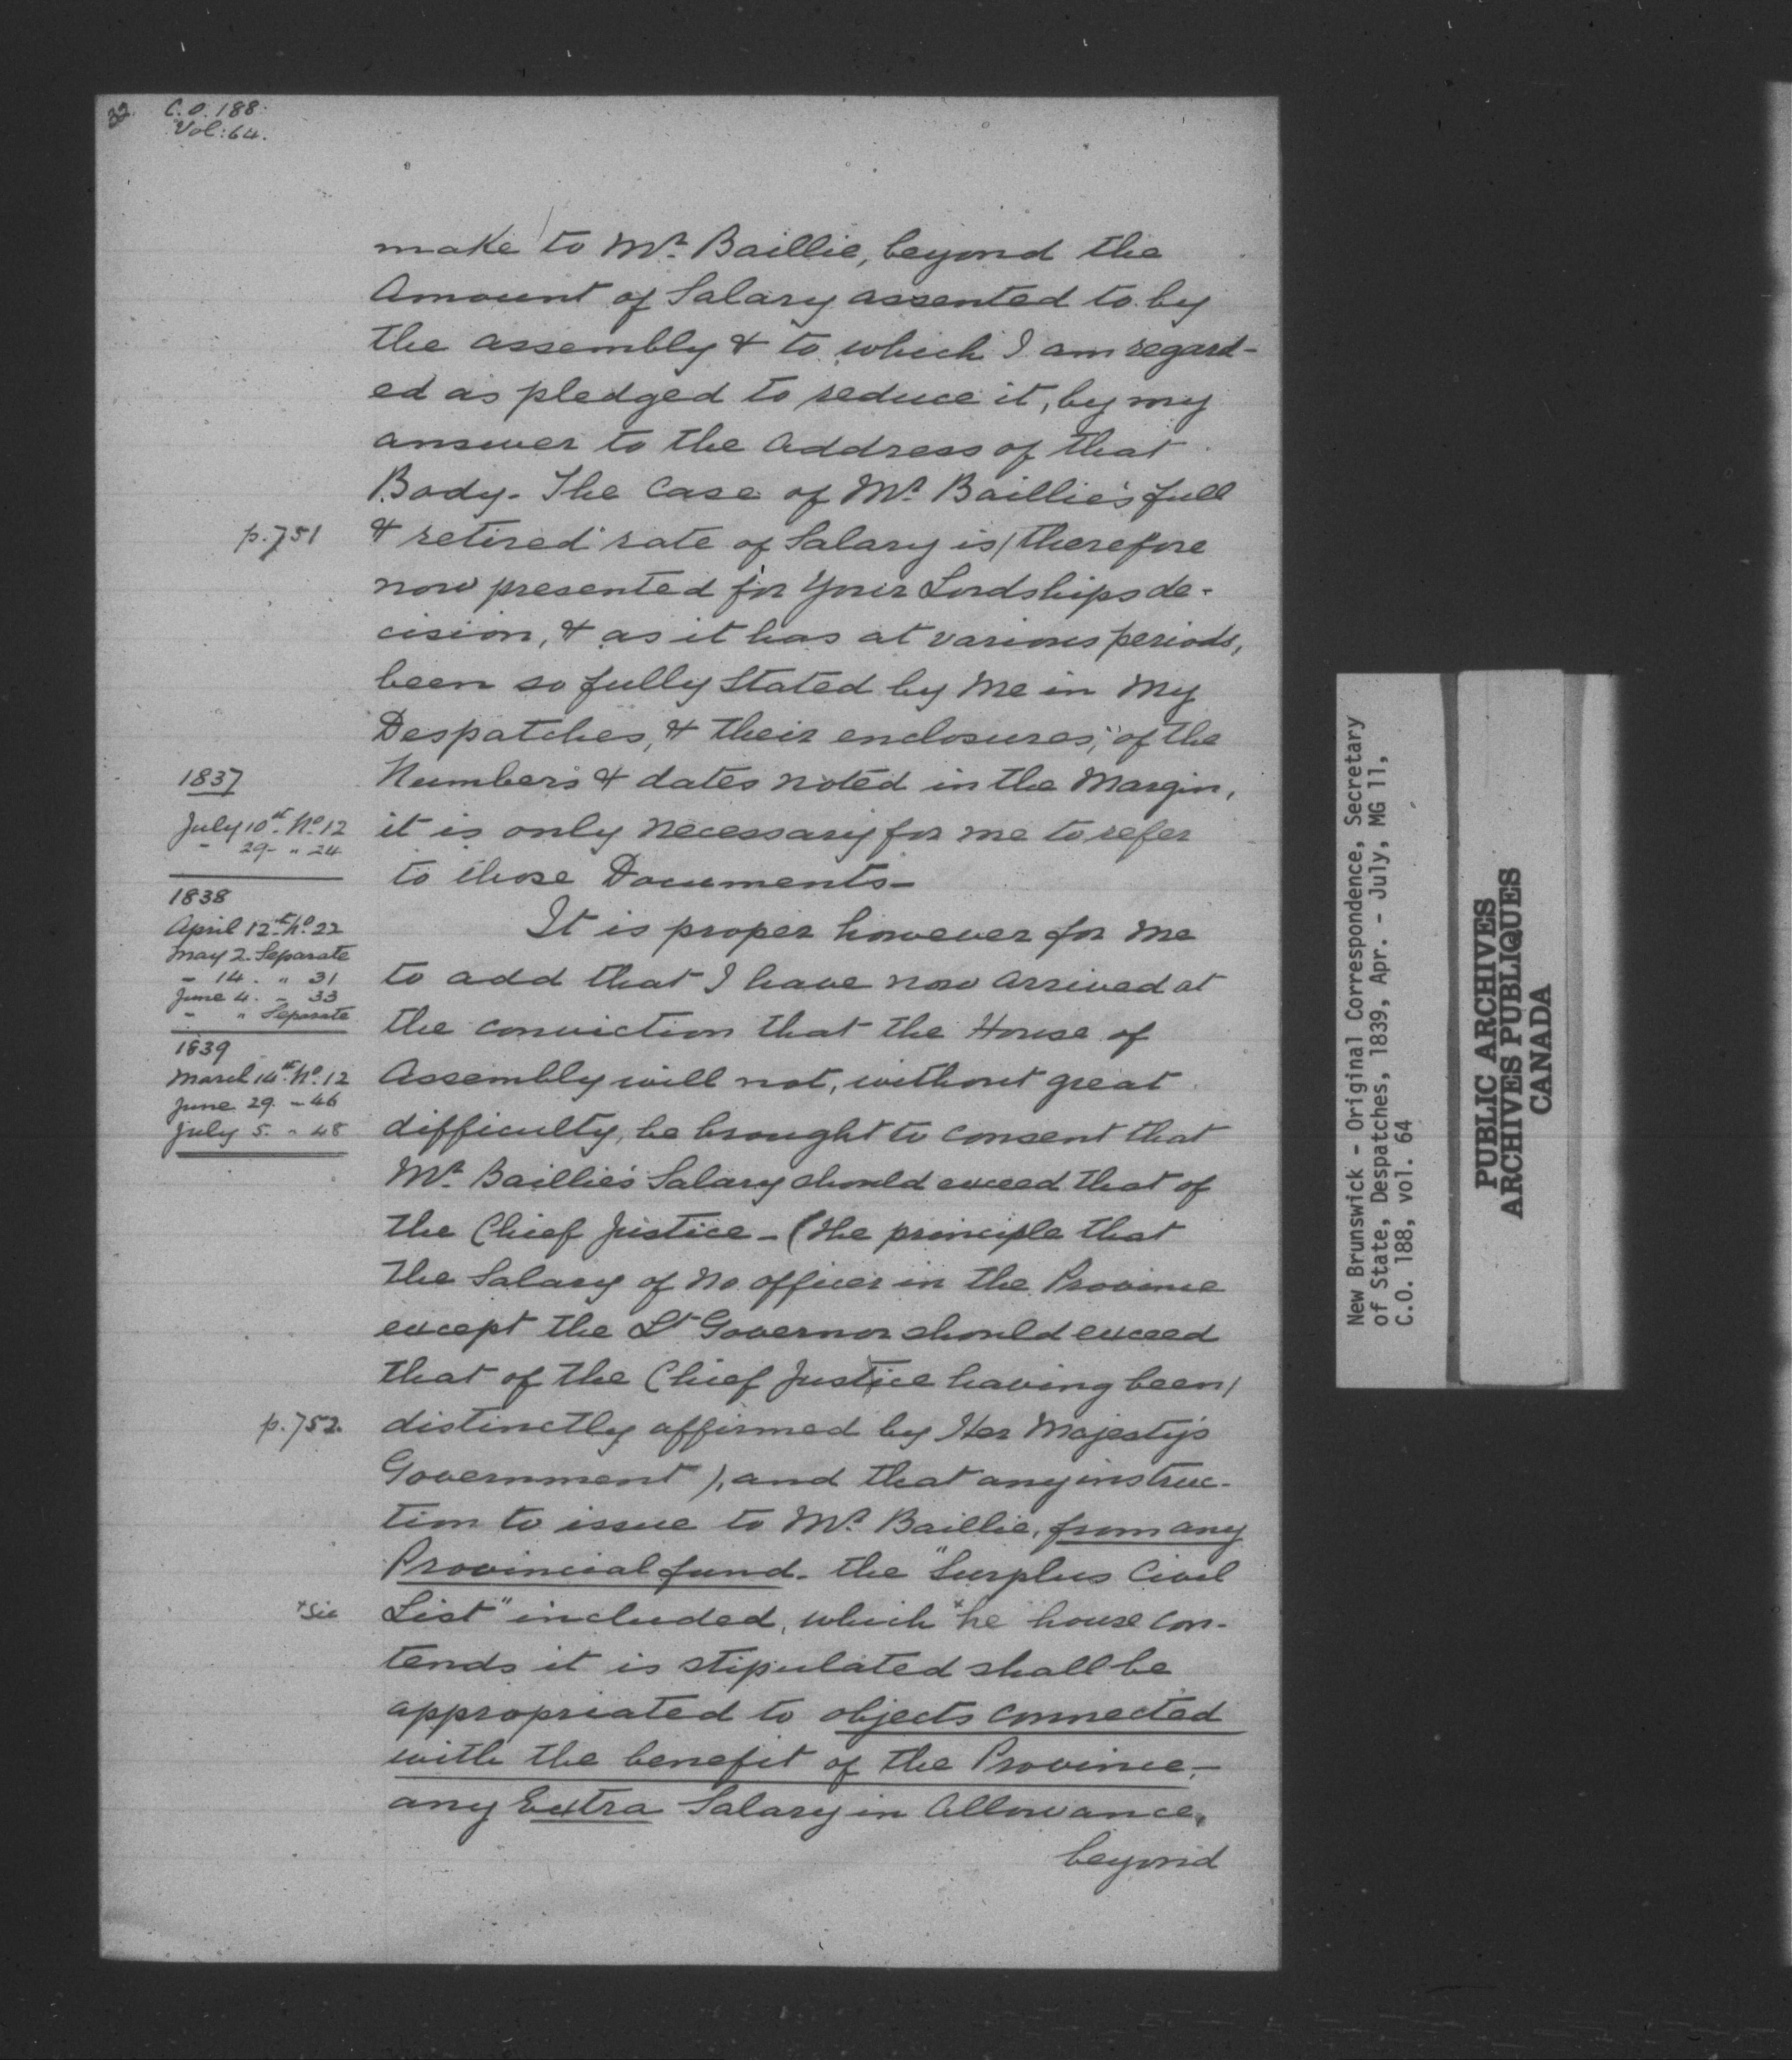 32.
C.O. 188.
Vol: 64.
make to Mr. Baillie, beyond the
Amount of Salary assented to by
the assembly & to which I am regard-
ed as pledged to reduce it, by my
answer to the Address of that
Body. The Case of Mr. Baillie's full
p. 751
& retired rate of Salary is/ therefore
now presented for Your Lordships de-
cision, & as it has at various periods,
been so fully Stated by Me in My
Despatches, & their enclosures, of the
1837
Numbers & dates noted in the Margin,
July 10th No. 12
it is only necessary for me to refer
" 29 - " 24
to those Documents -
1838
April 12th No. 22
It is proper however for Me
May 2. Separate
" 14. " 31
to add that I have now arrived at
June 4. - 33
" " Separate
the conviction that the House of
1839
March 14th No. 12
Assembly will not, without great
June 29. - 46
July 5. " 48
difficulty, be brought to consent that
Mr. Baillie's Salary should exceed that of
the Chief Justice - (the principle that
the Salary of No officer in the Province
except the Lt Governor should exceed
that of the Chief Justice having been/
p. 752.
distinctly affirmed by Her Majesty's
Government), and that any instruc-
tion to issue to Mr. Baillie, from any
Provincial fund - the "Surplus Civil
*sic
List" included, which *he house con-
tends it is stipulated shall be
appropriated to objects connected
with the benefit of the Province, -
any Extra Salary in Allowance,
beyond
New Brunswick - Original Correspondence, Secretary
of State, Despatches, 1839, Apr. - July, MG 11,
C.O. 188, vol. 64
PUBLIC ARCHIVES
ARCHIVES PUBLIQUES
CANADA